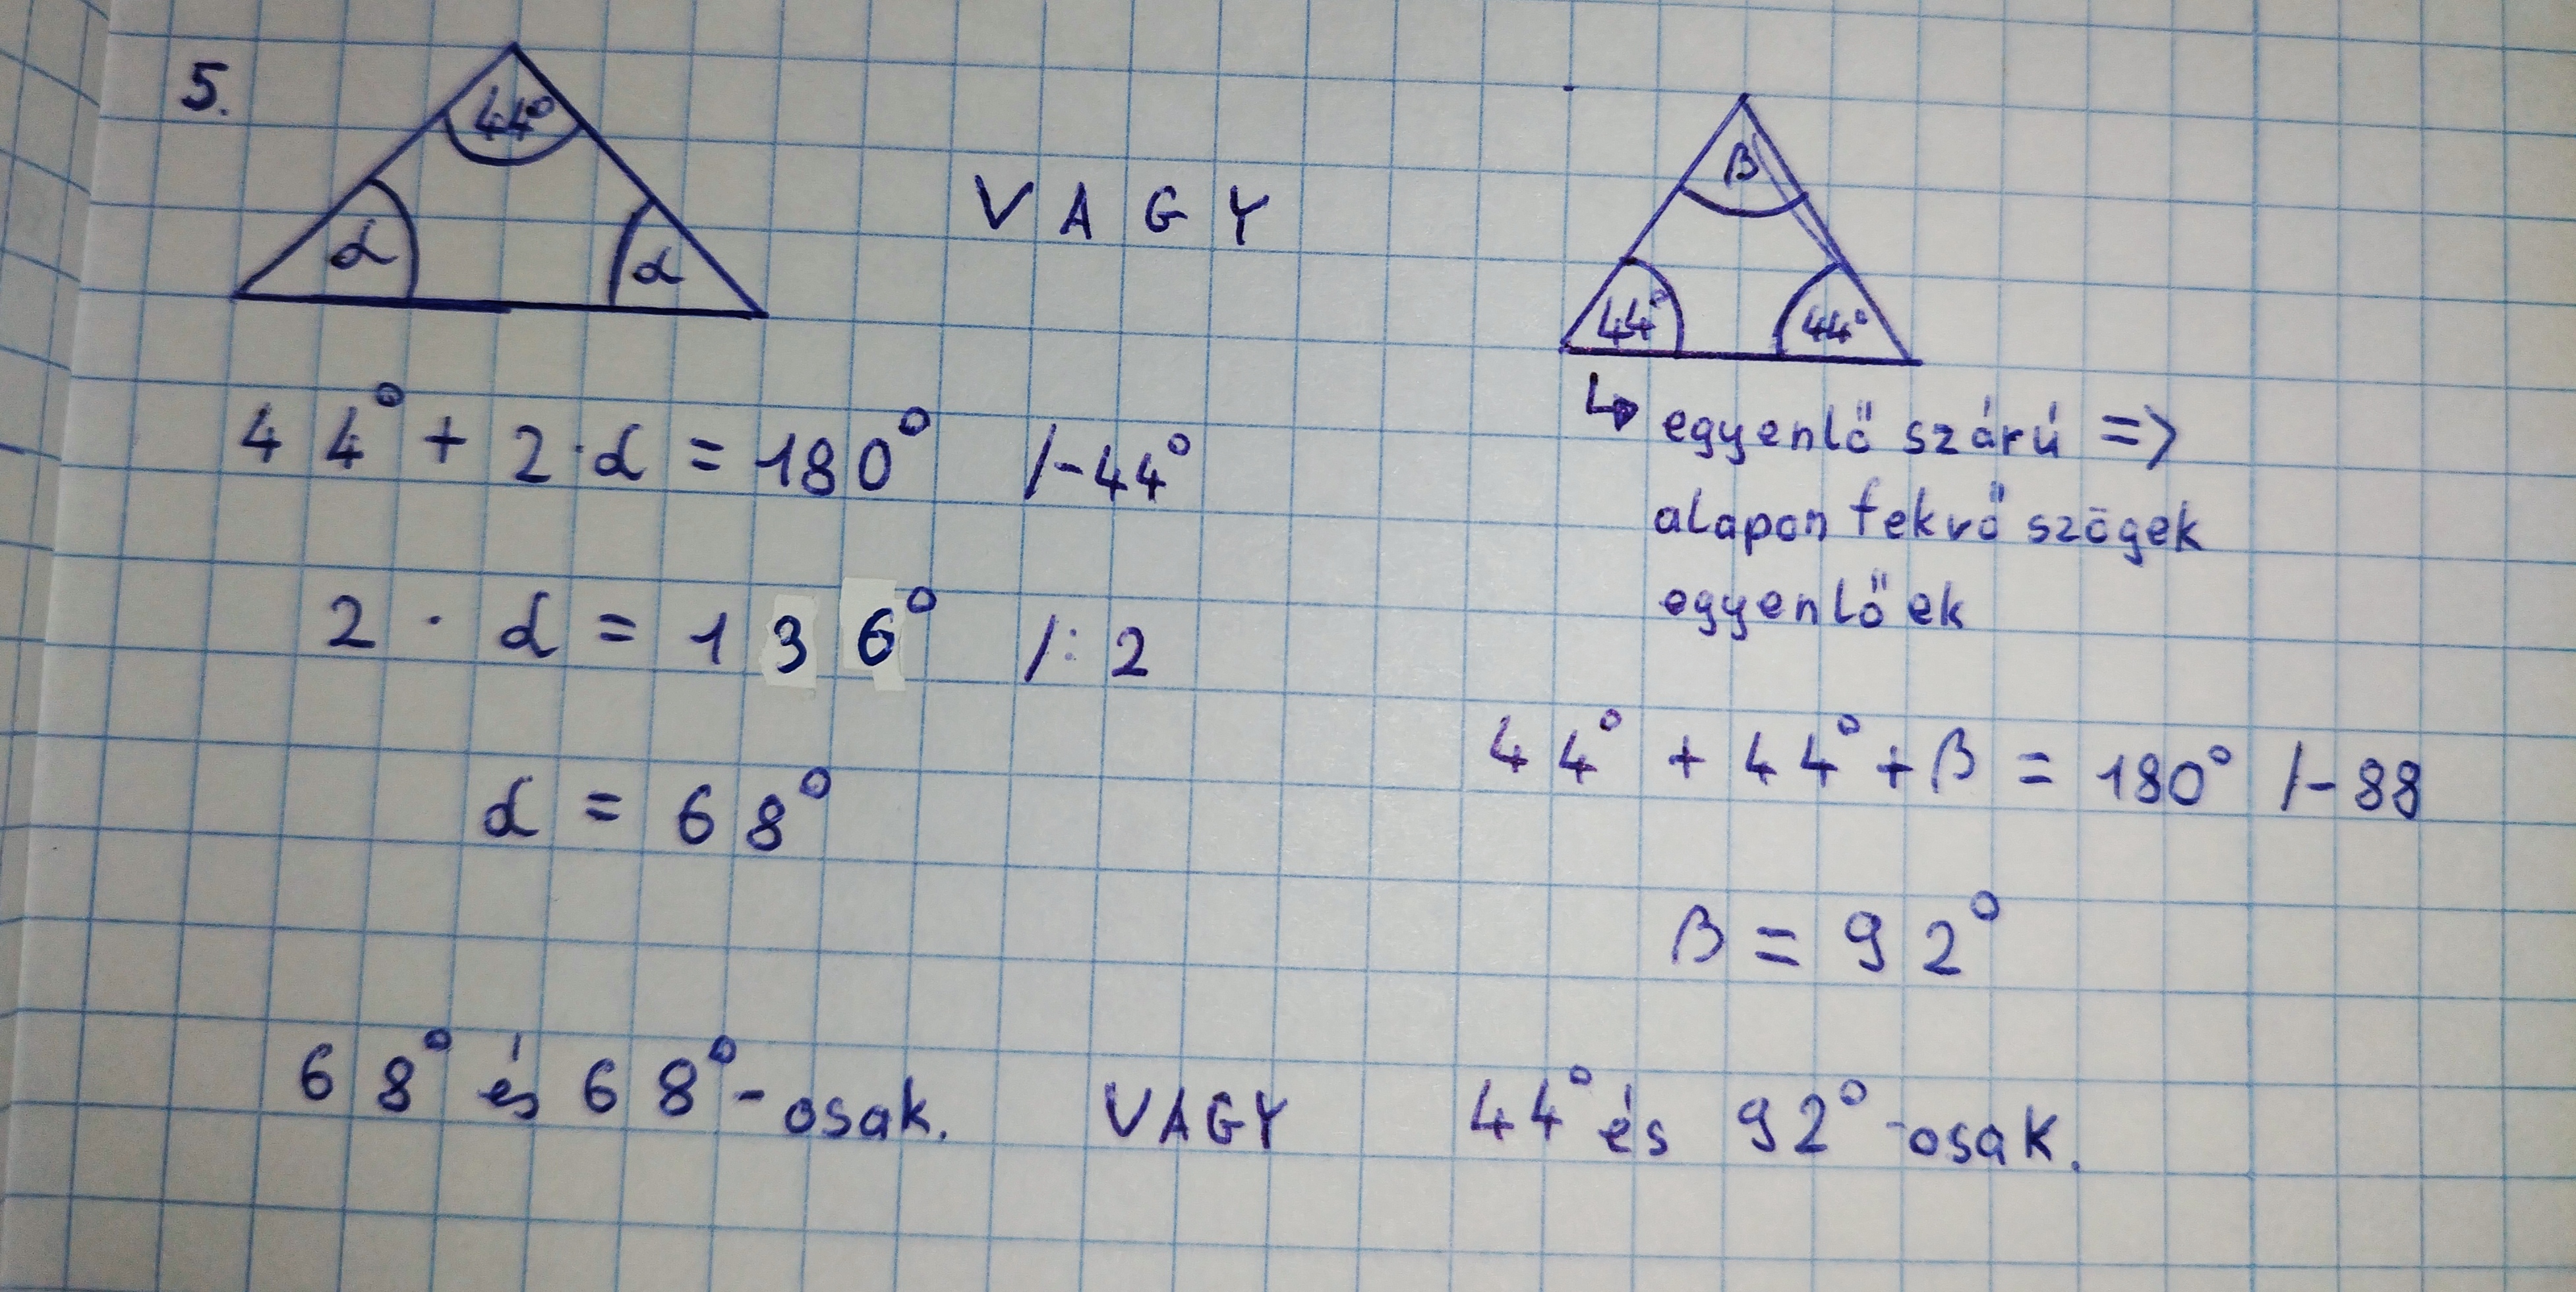 5.
44°
α α
VAGY
β
44° 44°
44° + 2·α = 180° /-44°
2 · α = 136° /: 2
α = 68°
↳ egyenlő szárú =>
alapon fekvő szögek
egyenlőek
44° + 44° + β = 180° /-88
β = 92°
68° és 68°-osak. VAGY 44° és 92°-osak.